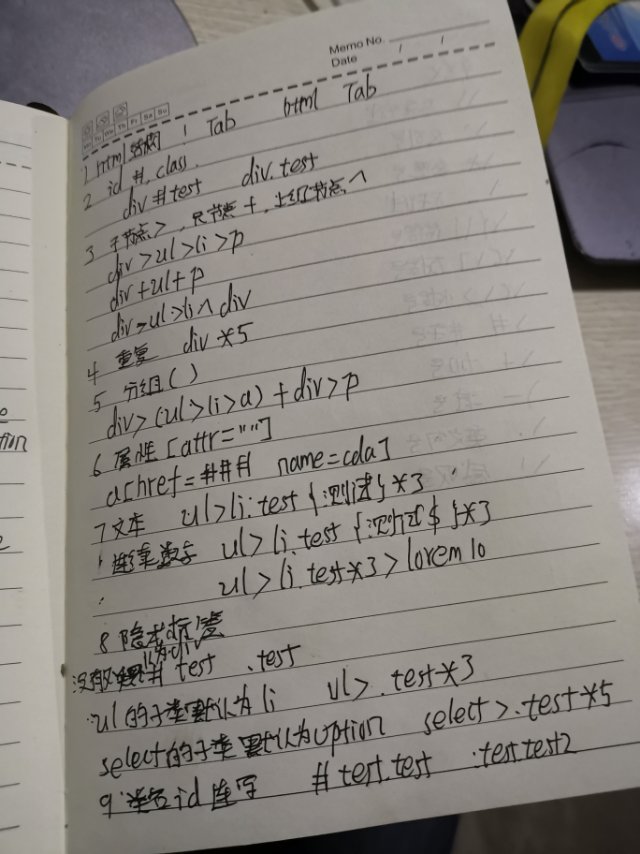 Memo No.
Date / /
Mo Tu We Th Fr Sa Su
1 html结构 ! Tab html Tab
2 id # .class.
div#test div.test
3 子节点>, 兄节点 +, 上级节点^
div>ul>li>p
div+ul+p
div=ul>li^div
4 重复 div*5
5 分组()
div>(ul>li>a)+div>p
6 属性 [attr=""]
a[href=### name=cda]
7 文本 ul>li.test{测试}*3
连续数字 ul>li.test{测试$}*3
ul>li.test*3>lorem10
8 隐式标签
没有 默认为div #test .test
ul的子类默认为li ul>.test*3
select的子类默认为option select>.test*5
9 类名id连写 #test.test .test.test2